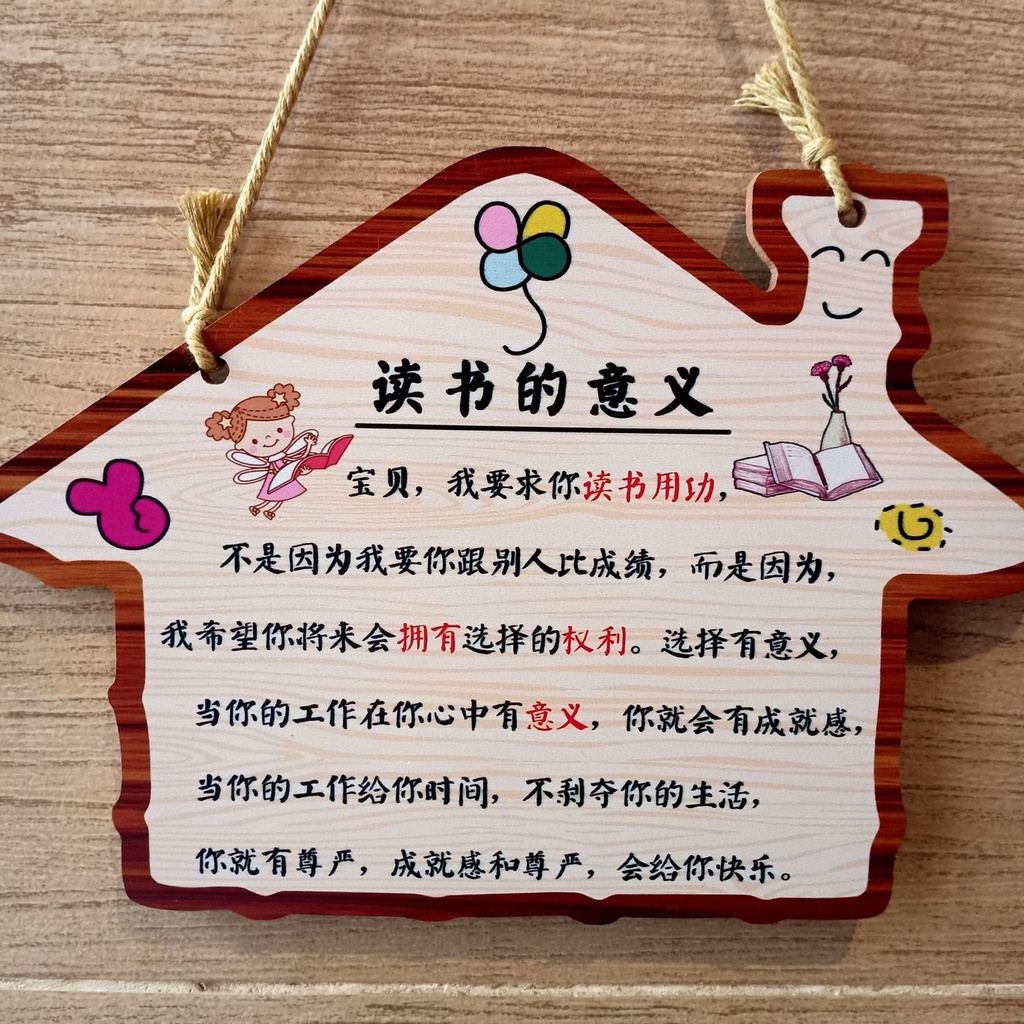 读书的意义
宝贝，我要求你读书用功，
不是因为我要你跟别人比成绩，而是因为，
我希望你将来会拥有选择的权利。选择有意义，
当你的工作在你心中有意义，你就会有成就感，
当你的工作给你时间，不剥夺你的生活，
你就有尊严，成就感和尊严，会给你快乐。